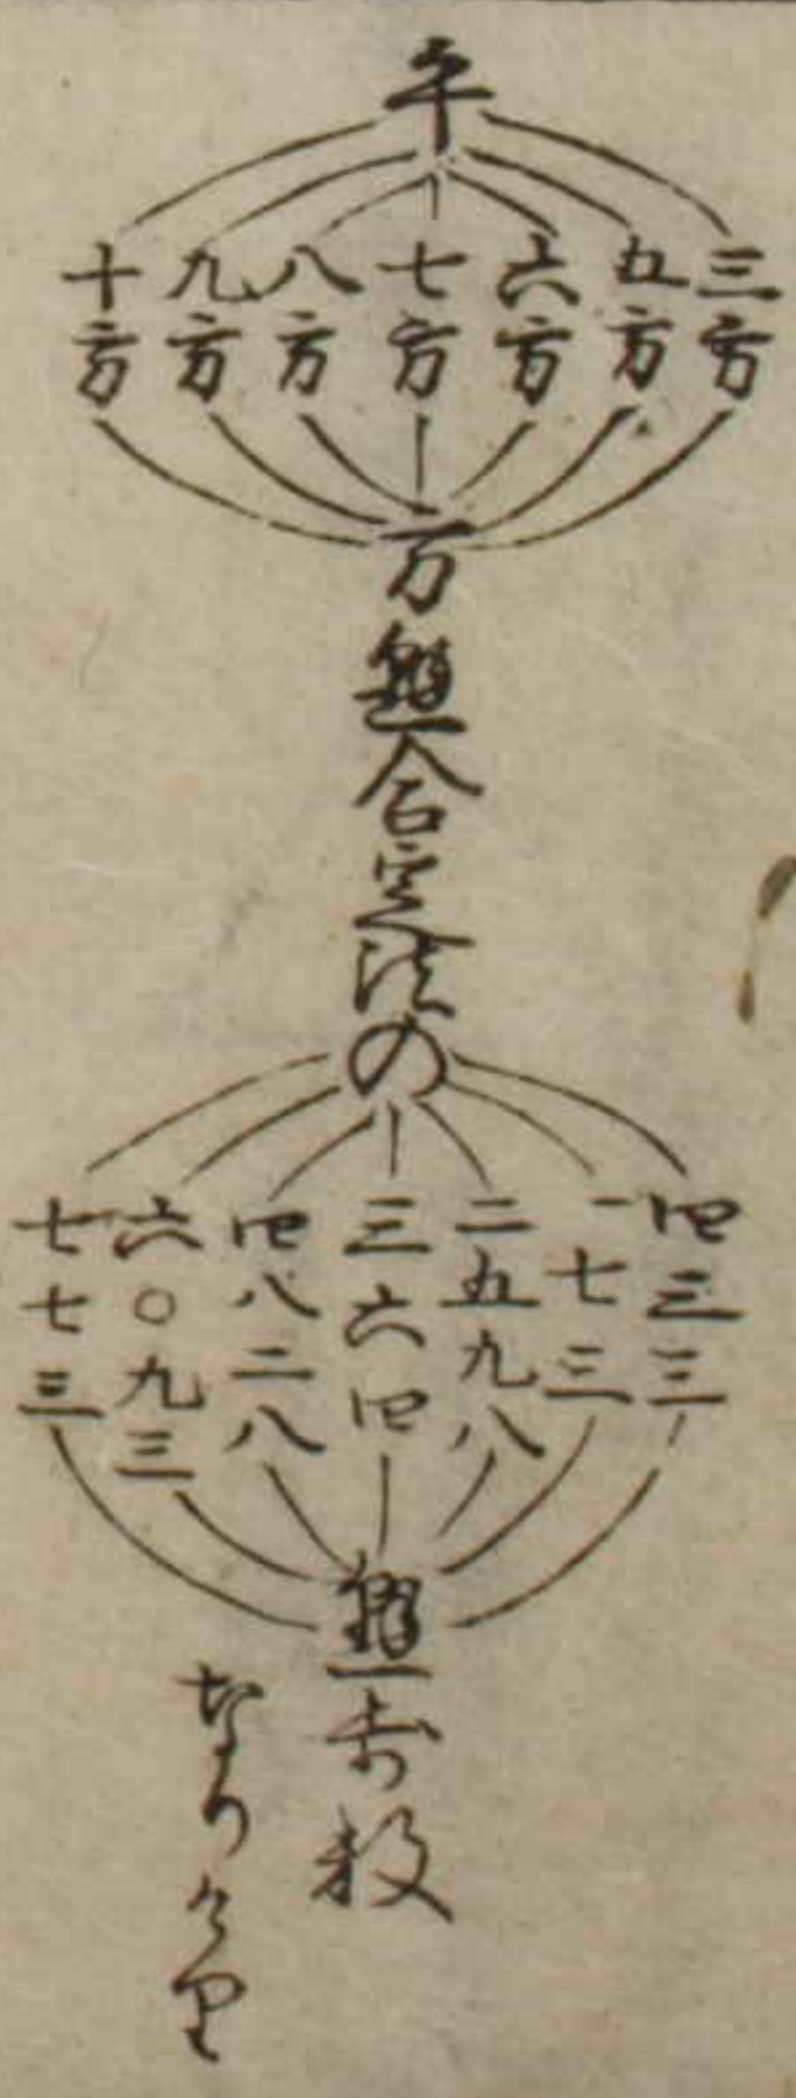 平
三方
五方
六方
七方
八方
九方
十方
方懸合定法の
四三三
一七三
二五九八
三六四
四八二八
六〇九三
七七三
懸歩数
なりけり